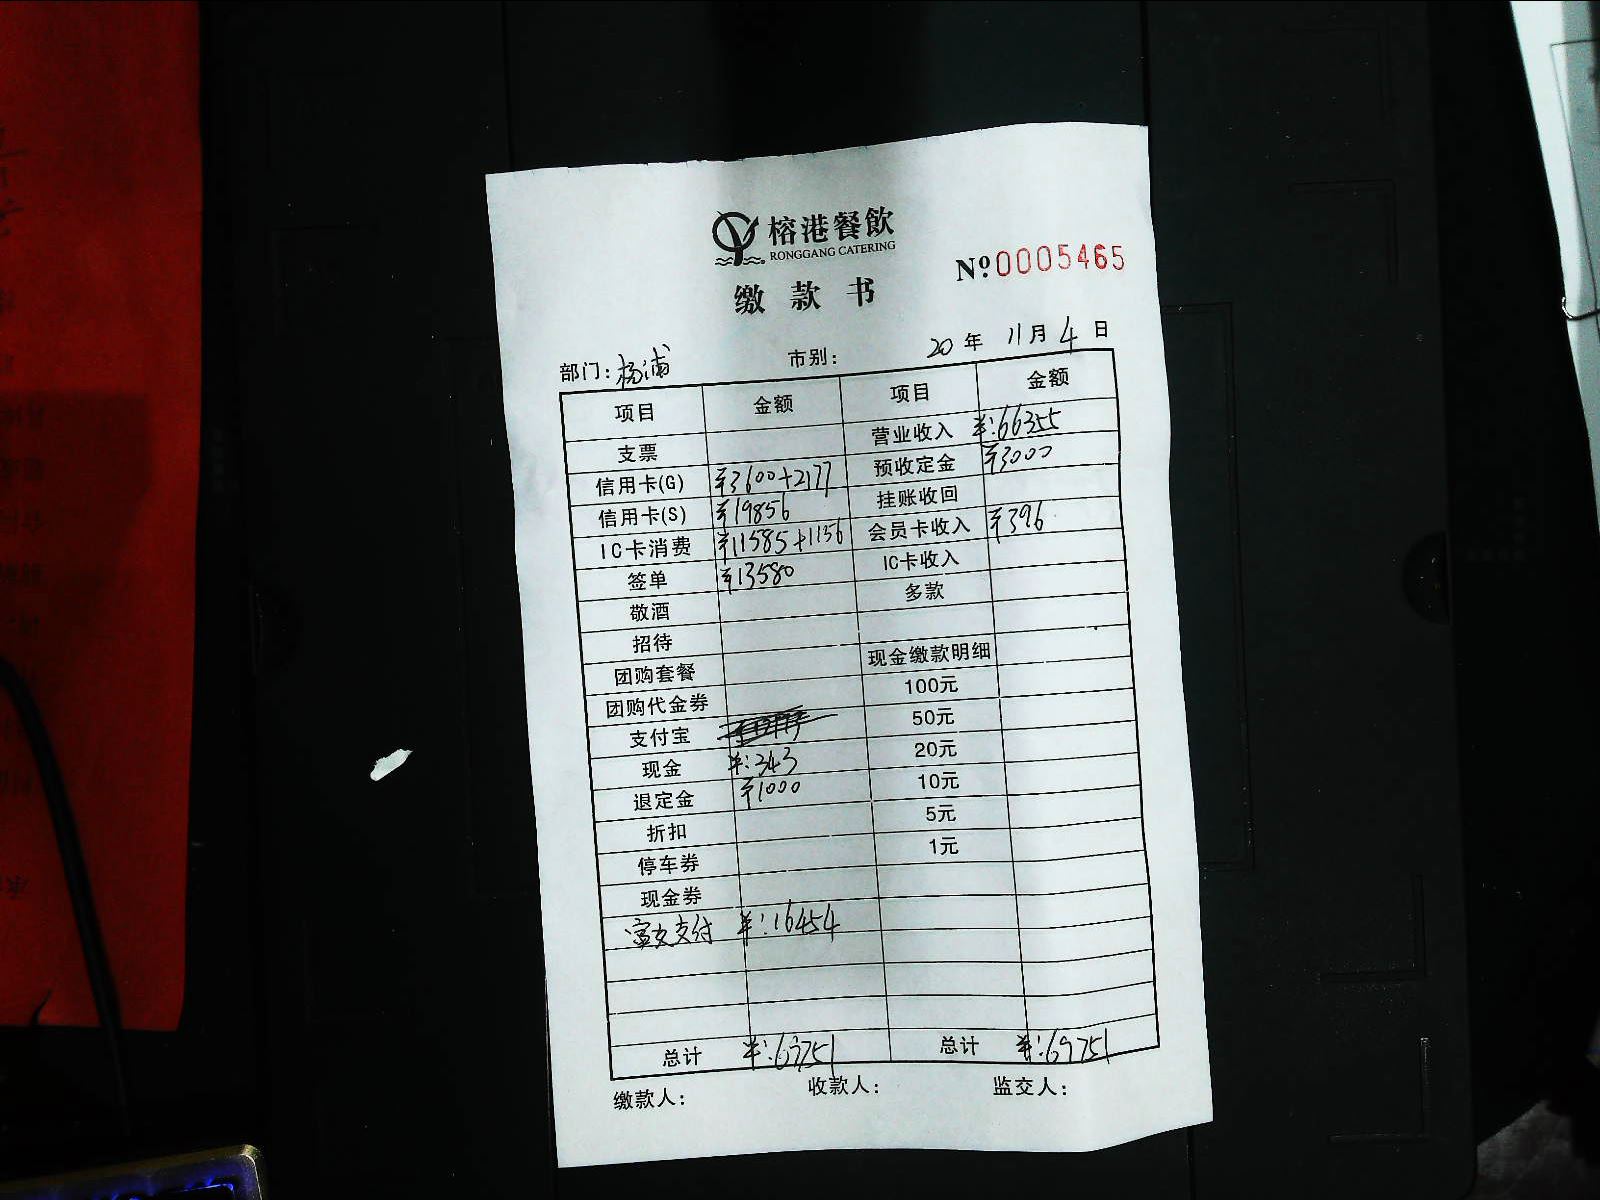 榕港餐飲
RONGGANG CATERING
缴款书
Nº0005465
部门：杨浦 市别： 20年11月4日
项目 金额 项目 金额
支票 营业收入 ¥:66355
信用卡(G) ¥3600+2177 预收定金 ¥3000
信用卡(S) ¥19856 挂账收回
IC卡消费 ¥11585+1156 会员卡收入 ¥396
签单 ¥13580 IC卡收入
敬酒 多款
招待
团购套餐 现金缴款明细
团购代金券 100元
支付宝 50元
现金 ¥:343 20元
退定金 ¥1000 10元
折扣 5元
停车券 1元
现金券
富友支付 ¥:16454
总计 ¥:69751 总计 ¥:69751
缴款人： 收款人： 监交人：